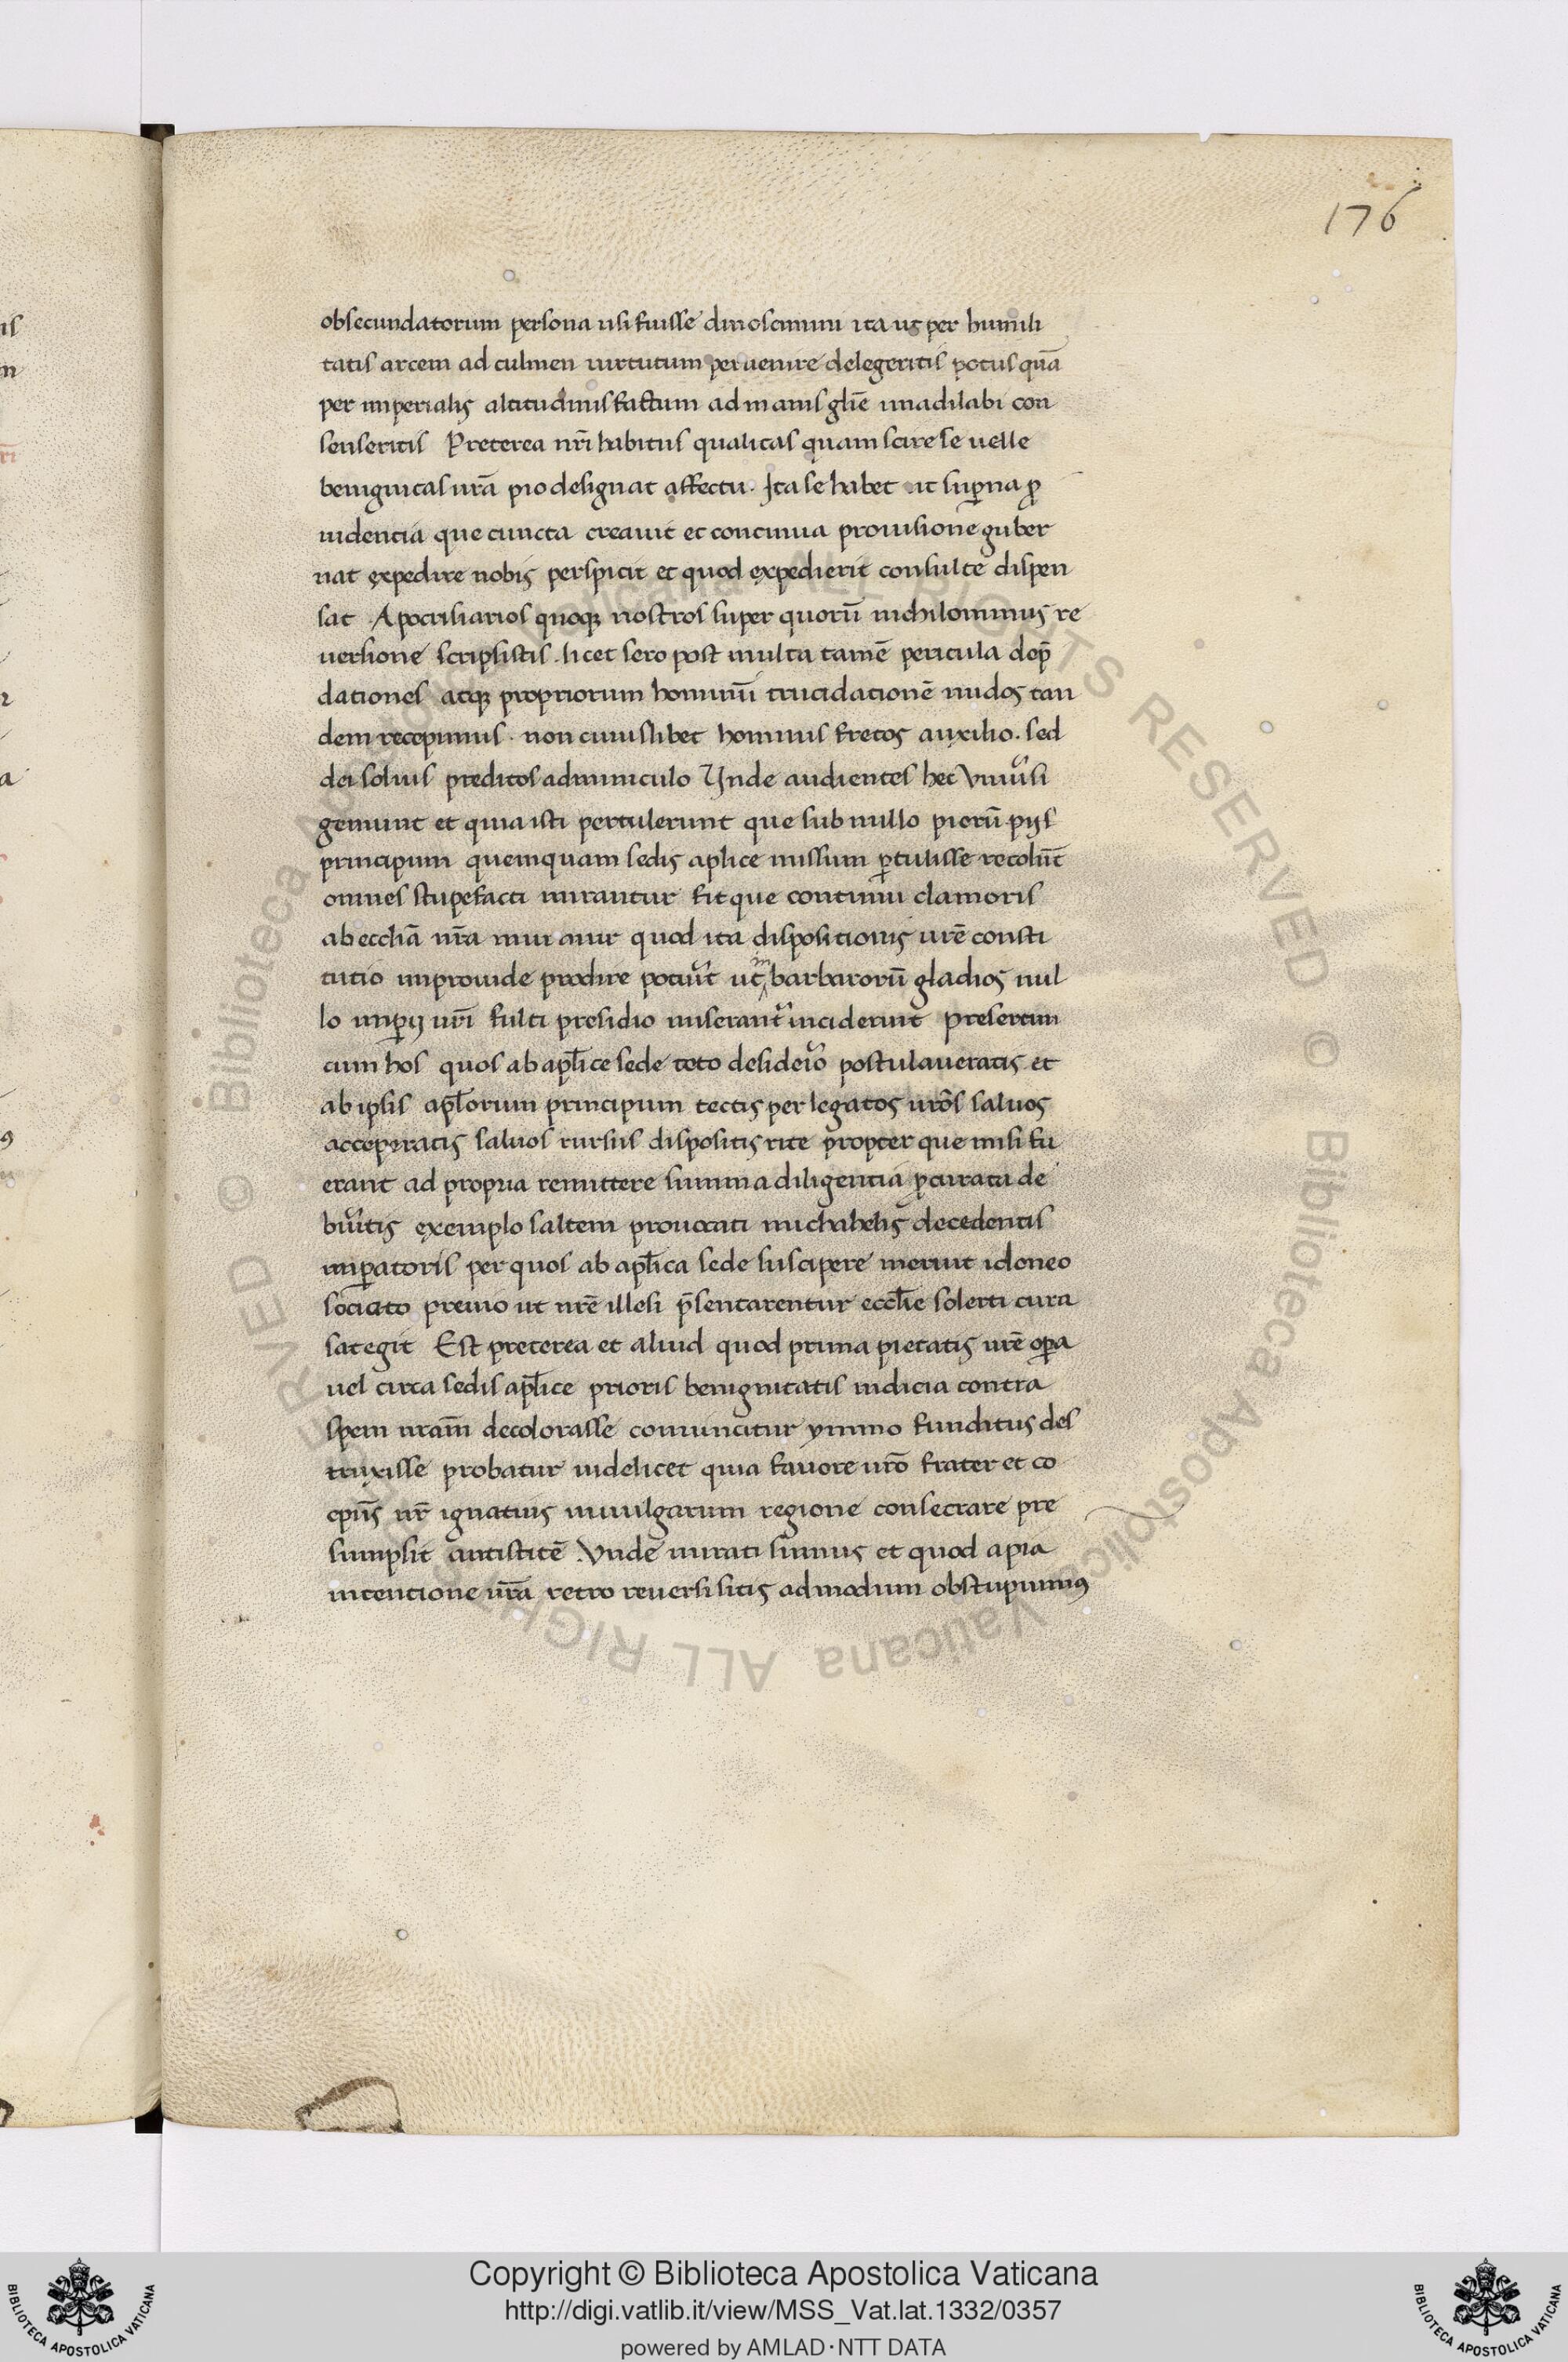 176
obsecundatorum persona usi fuisse dinoscimini ita ut per humili
tatis arcem ad culmen uirtutum peruenire delegeritis potius quā
per imperialis altitudinis fastum ad inanis gl̄ie ima dilabi con
senseritis Preterea nr̄i habitus qualitas quam scire se uelle
benignitas ur̄a pio designat affectu. Ita se habet ut sup̱na ꝓ
uidentia que cuncta creauit et continua prouisione guber
nat expedire nobis perspicit et quod expedierit consulte dispen
sat Apocrisiarios quoqꝫ nostros super quorū nichilominus re
uersione scripsistis. licet sero post multa tamē pericula dep̄
dationes atqꝫ propriorum hominū trucidationē nudos tan
dem recepimus. non cuiuslibet hominis fretos auxilio. sed
dei solius preditos adminiculo Unde audientes hec Vniu͛si
gemunt et quia isti pertulerunt que sub nullo piorū pijs
principum quemquam sedis aplice missum ꝑtulisse recolūt
omnes stupefacti mirantur fitque continui clamoris
ab eccliā nr̄a murmur quod ita dispositionis ur̄e consti
tutio improuide prodire potu͛it ut in barbarorū gladios nul
lo imꝑij ur̄i fulti presidio miserant͛ inciderint presertim
cum hos quos ab apl̄ice sede toto deside͛io postulaueratis et
ab ipsis apl̄orum principum tectis per legatos ur̄os saluos
acceperatis saluos rursus dispositis rite propter que misi fu
erant ad propria remittere summa diligentia ꝓcuratu de
bu͛itis exemplo saltem prouocati michahelis decedentis
imꝑatoris per quos ab apl̄ica sede suscipere meruit idoneo
sociato premio ut nr̄e illesi p̄sentarentur eccl̄ie solerti cura
sategit Est preterea et aliud quod prima pietatis ur̄e oꝑa
uel circa sedis apl̄ice prioris benignitatis indicia contra
spem nram̄ decolorasse conuincitur ymmo funditus des
truxisse probatur uidelicet quia fauore ur̄o frater et co
ep̄us nr̄ ignatius in uulgarum regione consecrare pre
sumpsit antistitē. Vnde mirati sumus et quod a pia
intentione ur̄a retro reuersi sitis admodum obstupuimꝰ
Copyright © Biblioteca Apostolica Vaticana
http://digi.vatlib.it/view/MSS_Vat.lat.1332/0357
powered by AMLAD·NTT DATA